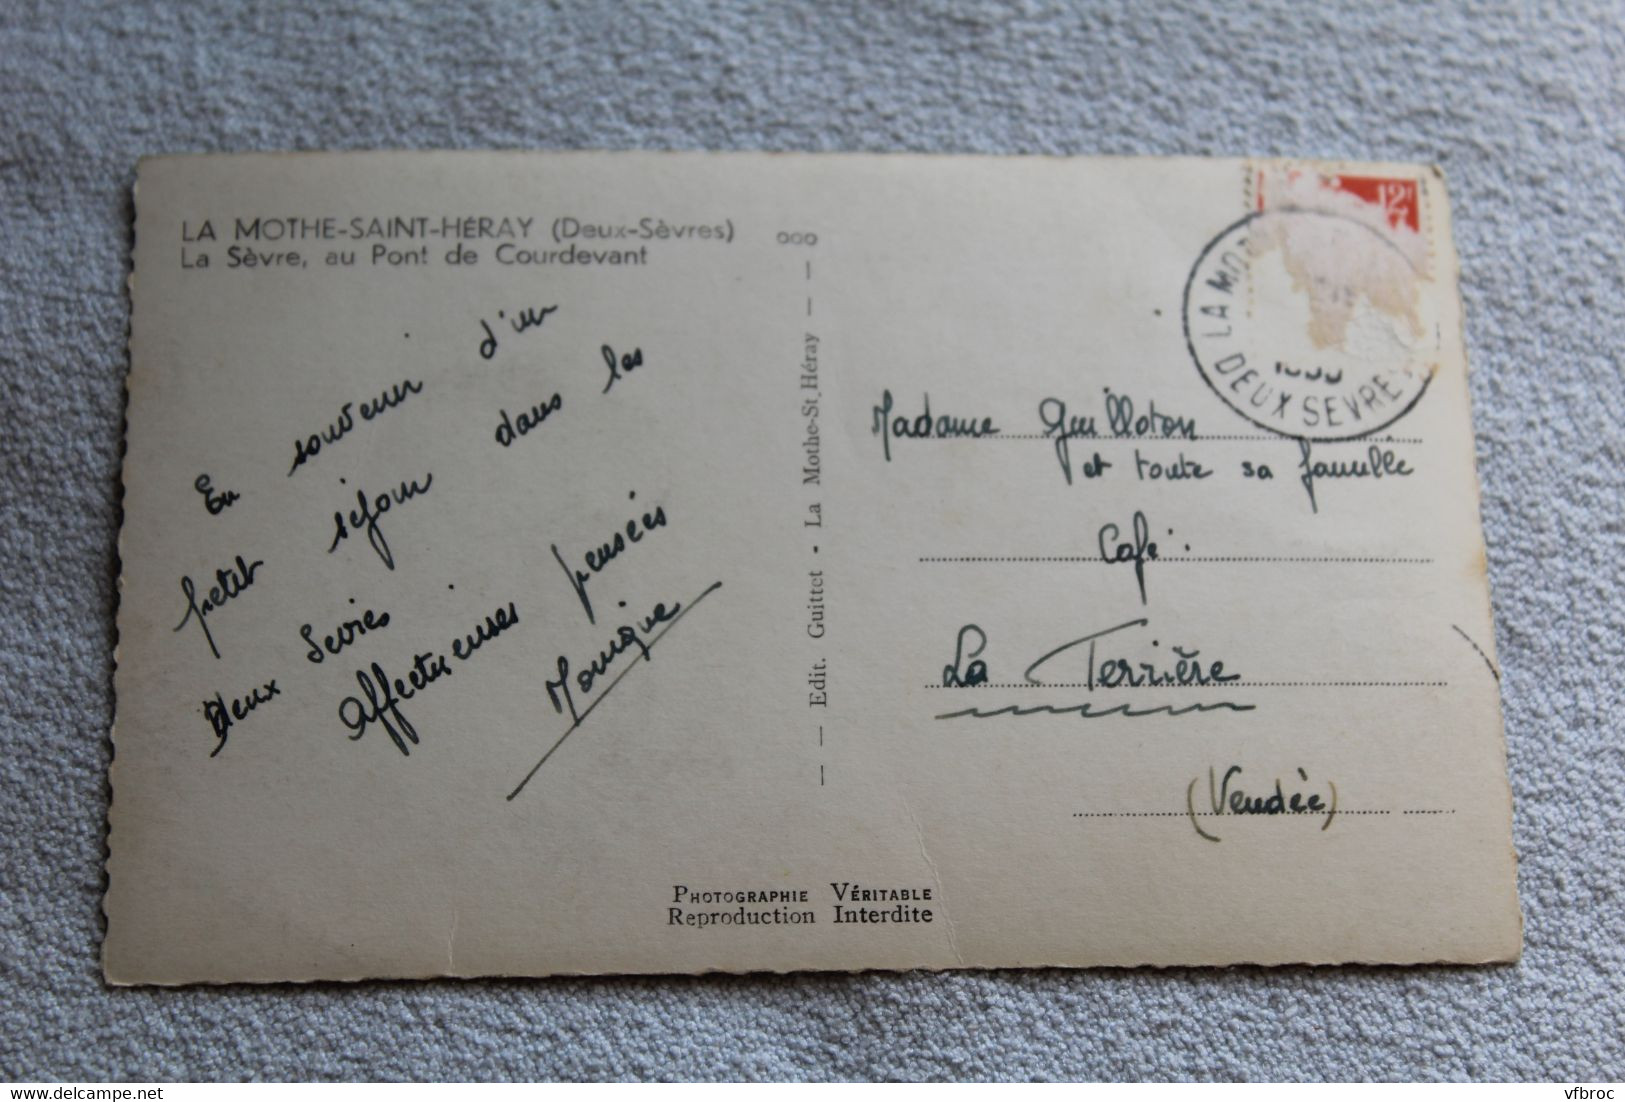 LA MOTHE-SAINT-HÉRAY (Deux-Sèvres)
La Sèvre, au Pont de Courdevant
En souvenir d'un
petit séjour dans les
Deux Sevres
Affectueuses pensées
Monique
Edit. Guittet - La Mothe-St-Héray
12F
LA MO
DEUX SEVRE
Madame Guilloton
et toute sa famille
Café.
La Terrière
(Vendée)
PHOTOGRAPHIE VÉRITABLE
Reproduction Interdite
delcampe.net
vfbroc